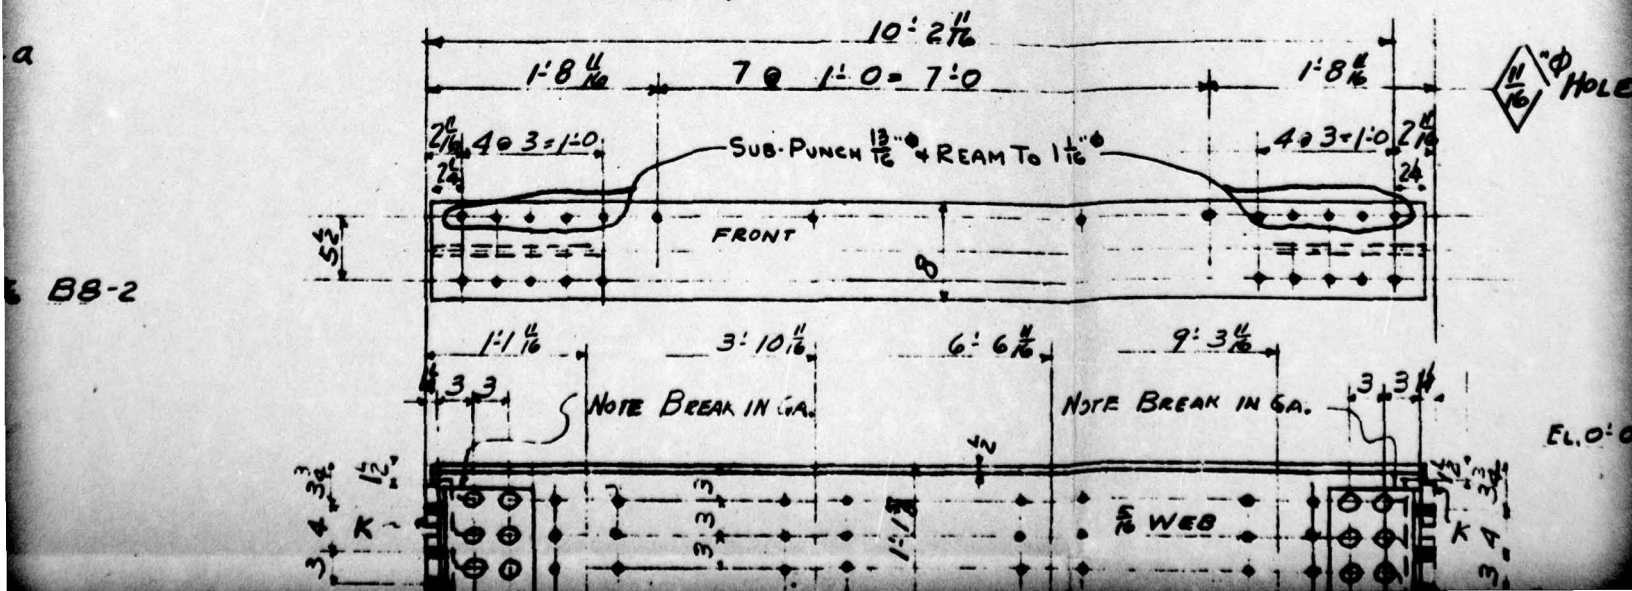 a
10'-2 11/16
1'-8 11/16 7 @ 1'-0 = 7'-0 1'-8 11/16
11/16 "Φ HOLE
2 11/16 4 @ 3 = 1'-0 SUB-PUNCH 13/16"Φ & REAM TO 1 1/16"Φ 4 @ 3 = 1'-0 2 11/16
2 1/4 2 1/4
5 1/2 FRONT 8
BB-2
1'-1 11/16 3'-10 11/16 6'-6 11/16 9'-3 11/16
3 3 NOTE BREAK IN GA. NOTE BREAK IN GA. 3 3
EL. 0'-0
3 3/4 1 1/2 1/2 1 1/2 3 3/4
4 K 3 3 3 5/16 WEB K 4
3 3